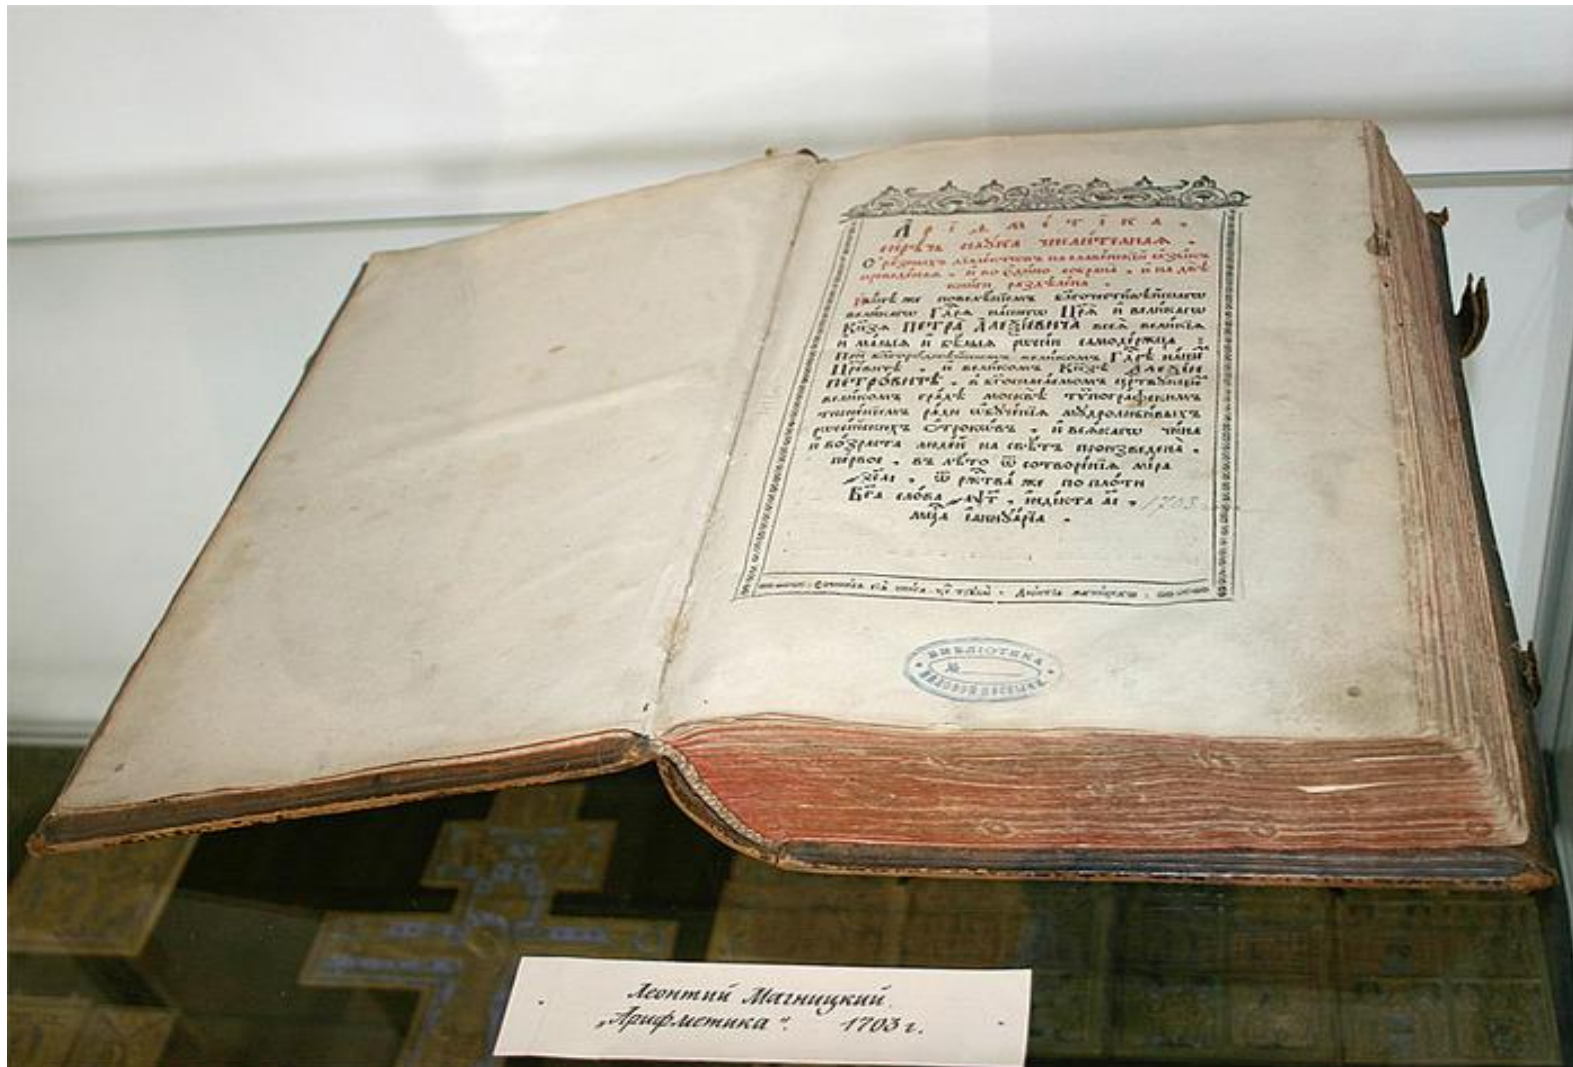 Арїѳмétїка.
сирѣчь наꙋка числителная.
Ѡ разныхъ дїалектѡвъ на славенскїй ѧзыкъ
преведеная, и во едино собрана, и на двѣ
книги раздѣлена.
Нынѣ же повелѣнїемъ бл҃гочестивѣйшагѡ
великагѡ Гдⷭ҇рѧ нашегѡ Цр҃ѧ и великагѡ
Кн҃зѧ ПЕТРА АЛЕѮІЕВИЧА всеѧ великїѧ
и малыѧ и бѣлыѧ рѡссїи самодержца:
При великомъ Гдⷭ҇рѣ нашемъ
Цр҃евичѣ, и великомъ Кн҃зѣ АЛЕѮІИ
ПЕТРОВИЧѢ, в бг҃оспасаемомъ црⷭ҇твꙋющемъ
великомъ градѣ москвѣ тѵпографскимъ
тисненїемъ ради ѡбꙋченїѧ мꙋдролюбивыхъ
рѡссїйскихъ ѻтрокѡвъ, и всѧкагѡ чина
и возраста людей на свѣтъ произведена,
первое, въ лѣто ѿ сотворенїѧ мїра
҂зс҃аі, ѿ ржⷭ҇тва же по плоти
Бг҃а слова ҂аѱ҃г, індїкта а҃і, 1703
мцⷭ҇а їаннꙋарїа.
Сочинисѧ сїѧ книга чрез трꙋды Леонтїа магницкагѡ:
БИБЛІОТЕКА
№
Леонтий Магницкий
„Арифметика“. 1703 г.